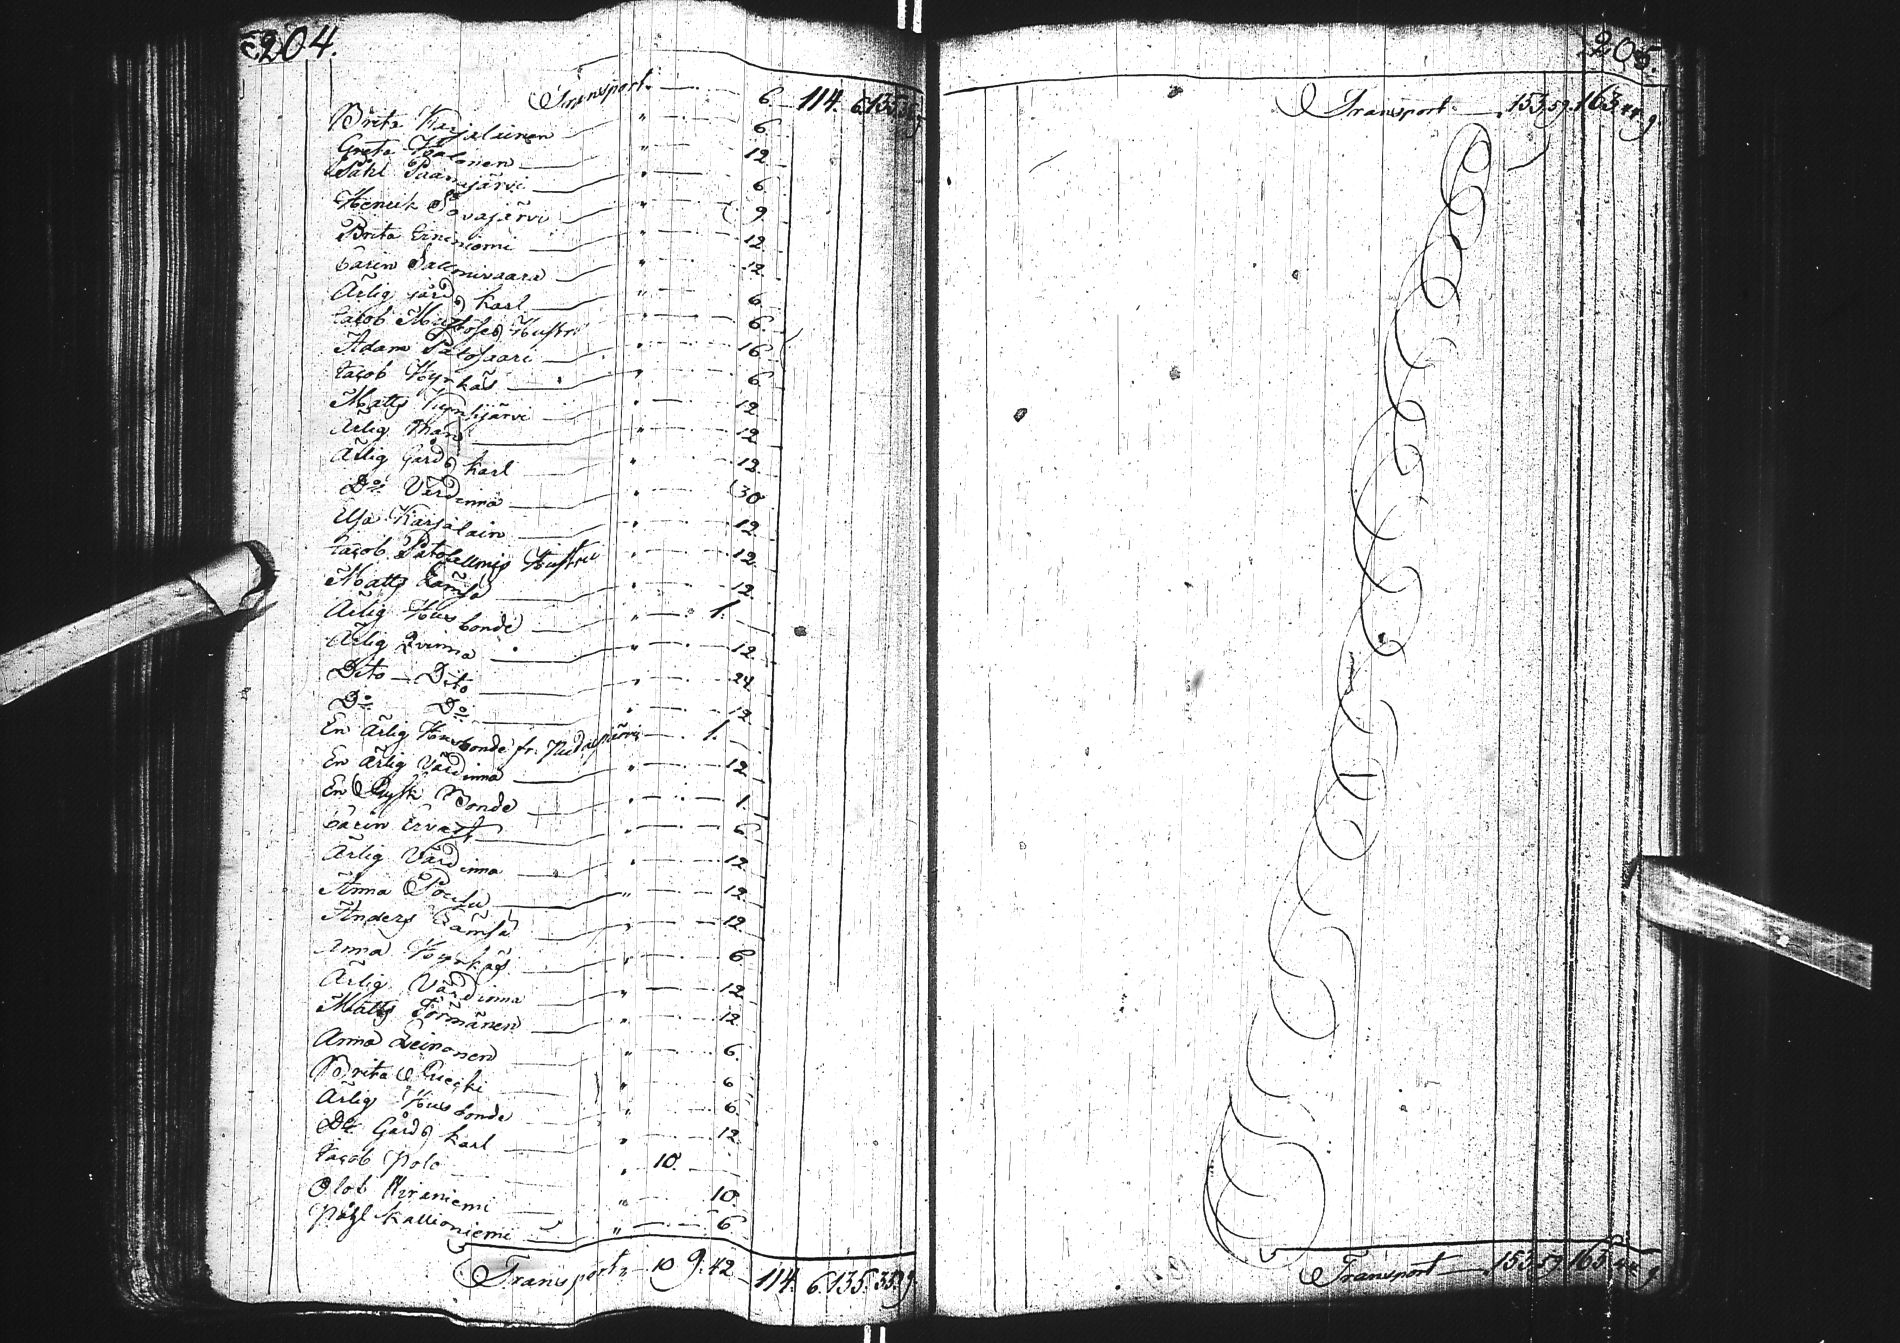 204.
Transport 6 114. 6. 135. 35. 9
Brita Karjalainen " 6
Greta Halonen " 12
Påhl Saarijärvi " 6
Henrik Sovajärvi " 9
Brita Grininiemi " 12
Carin Pallonivaara " 12
Ärlig gårds karl " 6
Jacob Hustru " 6
Adam Palosaari " 16
Jacob Hyrkäs " 6
Matts " 12
Ärlig " 12
Ärlig Gårds karl " 12
Do Värdinna " 30
Karjalain " 12
Jacob Hustru " 12
Matts Lämsä " 12
Ärlig Husbonde " 1.
Ärlig Qvinna " 12
Dito Dito " 24
Do Do " 12
En ärlig Husbonde fr. 1.
En ärlig Värdinna " 12
En Rysk Bonde " 1.
Carin Ervast " 6
Ärlig Värdinna " 12
Anna " 12
Anders Lämsä " 12
Anna Hyrkäs " 6
Ärlig Värdinna " 12
Matts Törmänen " 12
Anna Leinonen " 6
Brita " 6
Ärlig Husbonde " 6
Do Gårds karl " 12
Jacob Polo " 10.
Olob Niraniemi " 10
Påhl Kallioniemi " 6
Transport 10 9. 42 114. 6. 135. 35. 9
205.
Transport 153. 59. 163. 44. 9.
Transport 153. 59. 163. 44. 9